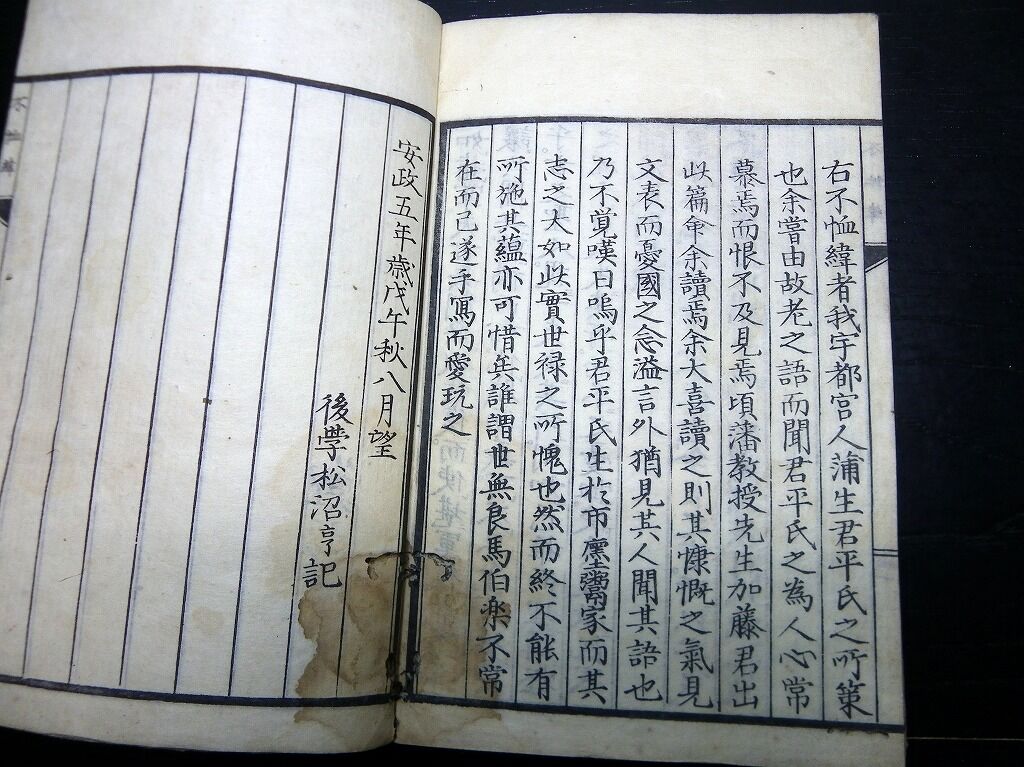 右不恤緯者我宇都宮人蒲生君平氏之所策
也余嘗由故老之語而聞君平氏之為人心常
慕焉而恨不及見焉頃藩教授先生加藤君出
此篇命余讀焉余大喜讀之則其慷慨之氣見
文表而憂國之念溢言外猶見其人聞其語也
乃不覚嘆曰嗚乎君平氏生於市廛鬻家而其
志之大如此實世禄之所愧也然而終不能有
所施其蘊亦可惜矣誰謂世無良馬伯楽不常
在而已遂手寫而愛玩之
安政五年歳戊午秋八月望
後学松沼亨記